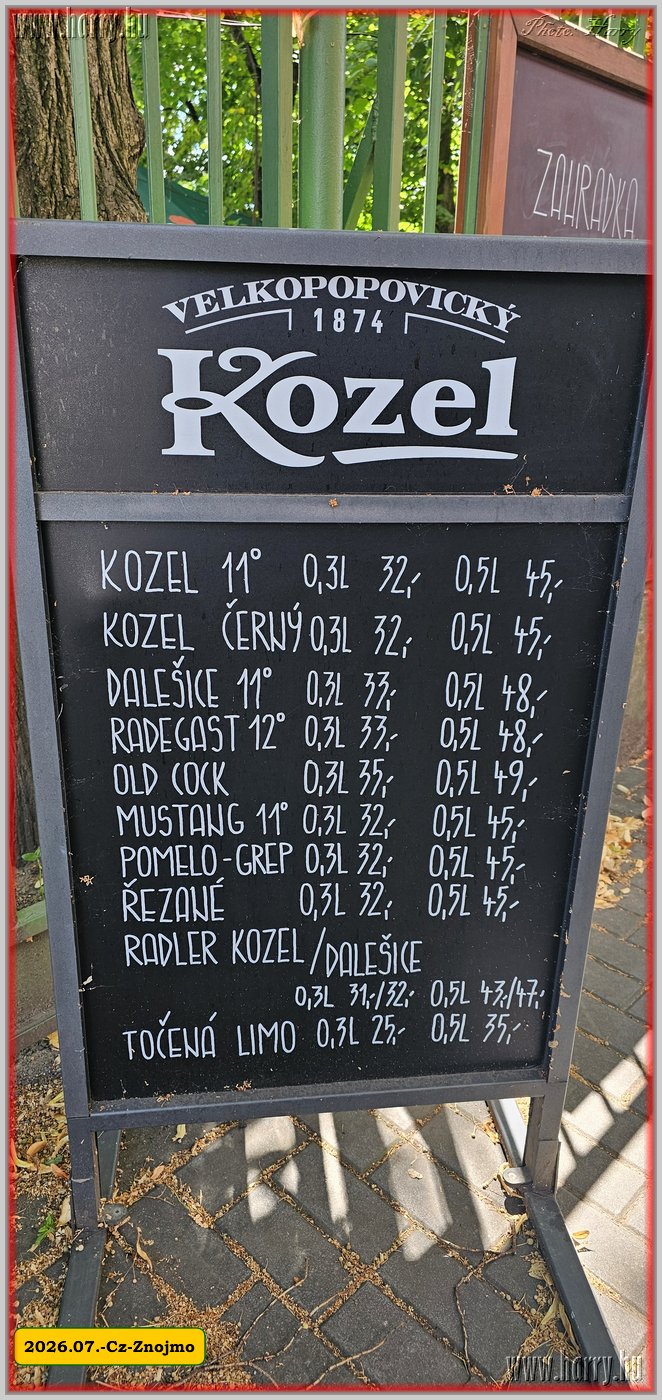 www.harry.hu
Photo: Harry
ZAHRADKA
VELKOPOPOVICKÝ
1874
Kozel
KOZEL 11° 0,3L 32,- 0,5L 45,-
KOZEL ČERNÝ 0,3L 32,- 0,5L 45,-
DALEŠICE 11° 0,3L 33,- 0,5L 48,-
RADEGAST 12° 0,3L 33,- 0,5L 48,-
OLD COCK 0,3L 35,- 0,5L 49,-
MUSTANG 11° 0,3L 32,- 0,5L 45,-
POMELO-GREP 0,3L 32,- 0,5L 45,-
ŘEZANÉ 0,3L 32,- 0,5L 45,-
RADLER KOZEL/DALEŠICE
0,3L 31,-/32,- 0,5L 43,-/47,-
TOČENÁ LIMO 0,3L 25,- 0,5L 35,-
2026.07.-Cz-Znojmo
www.harry.hu